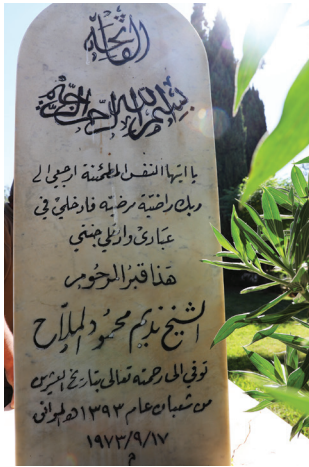 الفاتحة
بسم الله الرحمن الرحيم
يا ايتها النفس المطمئنة ارجعي الى
ربك راضية مرضية فادخلي في
عبادي وادخلي جنتي
هذا قبر المرحوم
الشيخ نديم محمود الملاح
توفي الى رحمته تعالى بتاريخ العشرين
من شعبان عام ١٣٩٣ هـ الموافق
١٩٧٣/٩/١٧
م